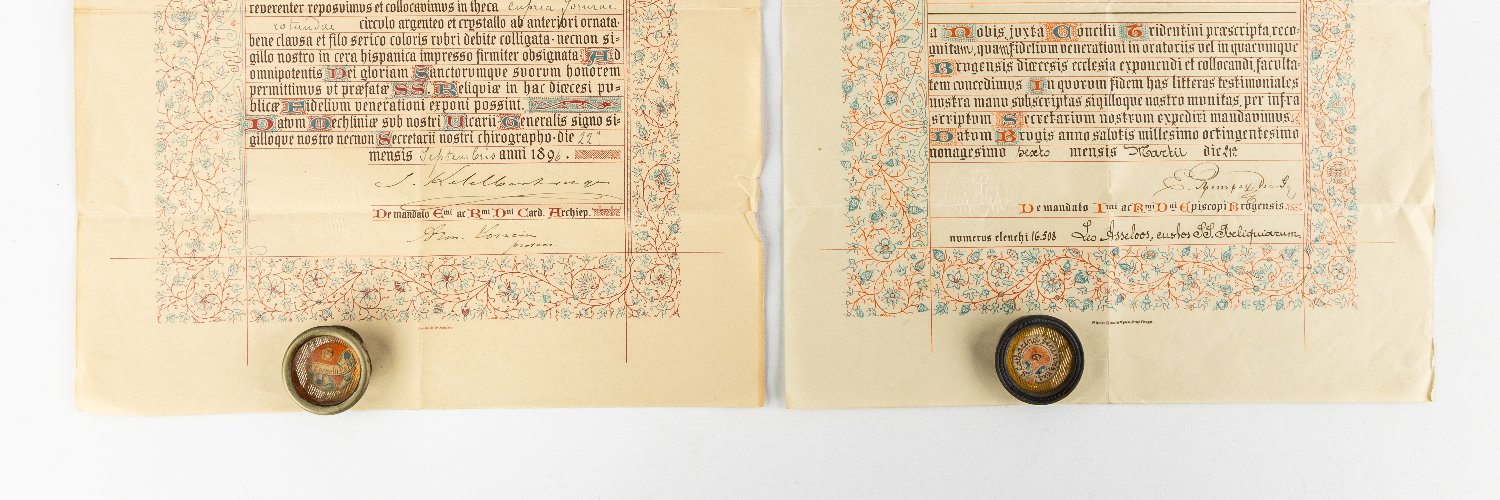 reverenter reposuimus et collocavimus in theca cuprea formae
rotundae circulo argenteo et crystallo ab anteriori ornata·
bene clausa et filo serico coloris rubri debite colligata· necnon si-
gillo nostro in cera hispanica impresso firmiter obsignata· Ad
omnipotentis Dei gloriam Sanctorumque suorum honorem
permittimus ut præfatæ SS. Reliquiæ in hac diœcesi pu-
blicæ Fidelium venerationi exponi possint.
Datum Mechliniæ sub nostri Vicarii Generalis signo si-
gilloque nostro necnon Secretarii nostri chirographo· die 22ª
mensis Septembris anni 1896.
De mandato Emi ac Rmi Dni Card. Archiep.
a Nobis, juxta Concilii Tridentini præscripta, reco-
gnitam, quam fidelium venerationi in oratoriis vel in quacumque
Brugensis diœcesis ecclesia exponendi et collocandi, faculta-
tem concedimus In quorum fidem has litteras testimoniales
nostra manu subscriptas sigilloque nostro munitas, per infra
scriptum Secretarium nostrum expediri mandavimus.
Datum Brugis anno salutis millesimo octingentesimo
nonagesimo sexto mensis Martii die 21ª
De mandato Imi ac Rmi Dni Episcopi Brugensis.
numerus elenchi 16.508 Leo Asseloos, custos SS. Reliquiarum.